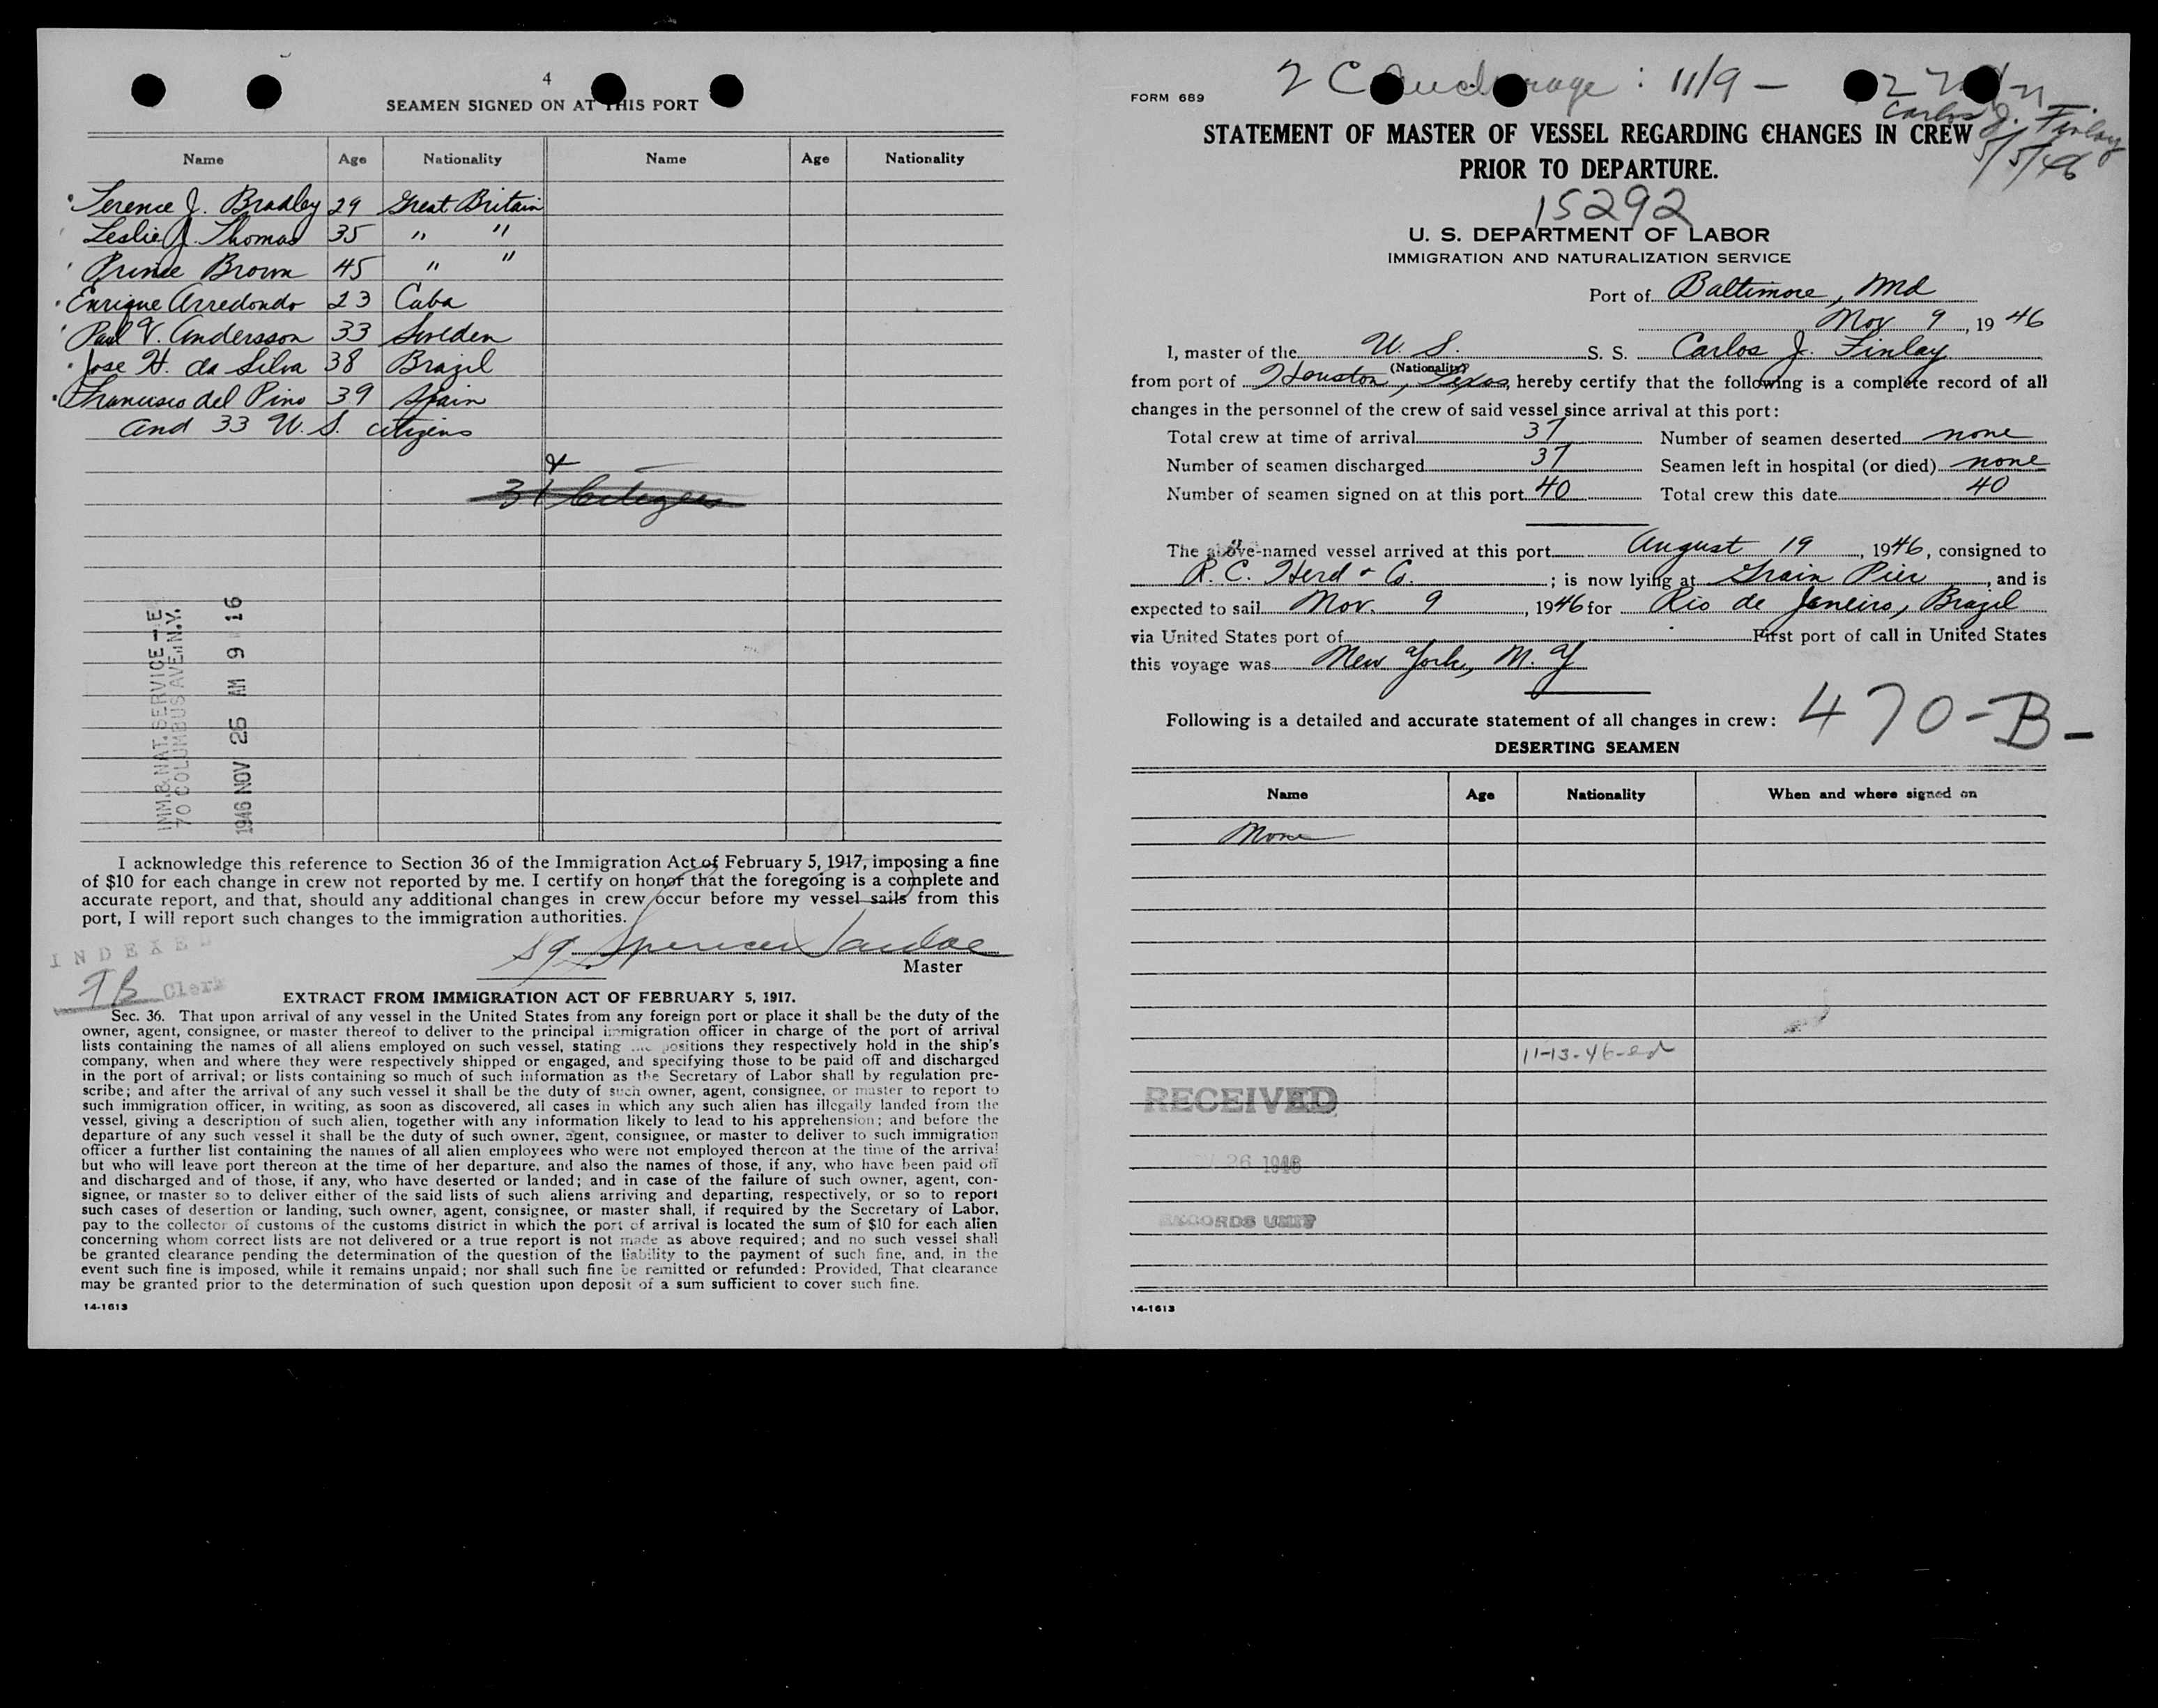 4
SEAMEN SIGNED ON AT THIS PORT
Name Age Nationality Name Age Nationality
Terence J. Bradley 29 Great Britain
Leslie J. Thomas 35 " "
Prince Brown 45 " "
Enrique Arredondo 23 Cuba
Paul V. Andersson 33 Sweden
Jose H. da Silva 38 Brazil
Francisco del Pino 39 Spain
and 33 U. S. citizens
IMM. & NAT. SERVICE
70 COLUMBUS AVE. N.Y.
1946 NOV 26 AM 9 16
I acknowledge this reference to Section 36 of the Immigration Act of February 5, 1917, imposing a fine
of $10 for each change in crew not reported by me. I certify on honor that the foregoing is a complete and
accurate report, and that, should any additional changes in crew occur before my vessel sails from this
port, I will report such changes to the immigration authorities.
Spencer
Master
INDEXED
Clerk
EXTRACT FROM IMMIGRATION ACT OF FEBRUARY 5, 1917.
Sec. 36. That upon arrival of any vessel in the United States from any foreign port or place it shall be the duty of the
owner, agent, consignee, or master thereof to deliver to the principal immigration officer in charge of the port of arrival
lists containing the names of all aliens employed on such vessel, stating the positions they respectively hold in the ship's
company, when and where they were respectively shipped or engaged, and specifying those to be paid off and discharged
in the port of arrival; or lists containing so much of such information as the Secretary of Labor shall by regulation pre-
scribe; and after the arrival of any such vessel it shall be the duty of such owner, agent, consignee, or master to report to
such immigration officer, in writing, as soon as discovered, all cases in which any such alien has illegally landed from the
vessel, giving a description of such alien, together with any information likely to lead to his apprehension; and before the
departure of any such vessel it shall be the duty of such owner, agent, consignee, or master to deliver to such immigration
officer a further list containing the names of all alien employees who were not employed thereon at the time of the arrival
but who will leave port thereon at the time of her departure, and also the names of those, if any, who have been paid off
and discharged and of those, if any, who have deserted or landed; and in case of the failure of such owner, agent, con-
signee, or master so to deliver either of the said lists of such aliens arriving and departing, respectively, or so to report
such cases of desertion or landing, such owner, agent, consignee, or master shall, if required by the Secretary of Labor,
pay to the collector of customs of the customs district in which the port of arrival is located the sum of $10 for each alien
concerning whom correct lists are not delivered or a true report is not made as above required; and no such vessel shall
be granted clearance pending the determination of the question of the liability to the payment of such fine, and, in the
event such fine is imposed, while it remains unpaid; nor shall such fine be remitted or refunded: Provided, That clearance
may be granted prior to the determination of such question upon deposit of a sum sufficient to cover such fine.
14-1613
Anchorage : 11/9 -
FORM 689
Carlos J. Finlay
5/5/46
STATEMENT OF MASTER OF VESSEL REGARDING CHANGES IN CREW
PRIOR TO DEPARTURE.
15292
U. S. DEPARTMENT OF LABOR
IMMIGRATION AND NATURALIZATION SERVICE
Port of Baltimore, Md
Nov 9, 19 46
I, master of the U. S. S. S. Carlos J. Finlay
(Nationality)
from port of Houston, Texas, hereby certify that the following is a complete record of all
changes in the personnel of the crew of said vessel since arrival at this port:
Total crew at time of arrival 37 Number of seamen deserted none
Number of seamen discharged 37 Seamen left in hospital (or died) none
Number of seamen signed on at this port 40 Total crew this date 40
The above-named vessel arrived at this port August 19, 1946, consigned to
R. C. Herd & Co.; is now lying at Grain Pier, and is
expected to sail Nov. 9, 1946 for Rio de Janeiro, Brazil
via United States port of First port of call in United States
this voyage was New York, N. Y
Following is a detailed and accurate statement of all changes in crew: 470-B-
DESERTING SEAMEN
Name Age Nationality When and where signed on
None
11-13-46-
RECEIVED
26 1946
RECORDS UNIT
14-1613